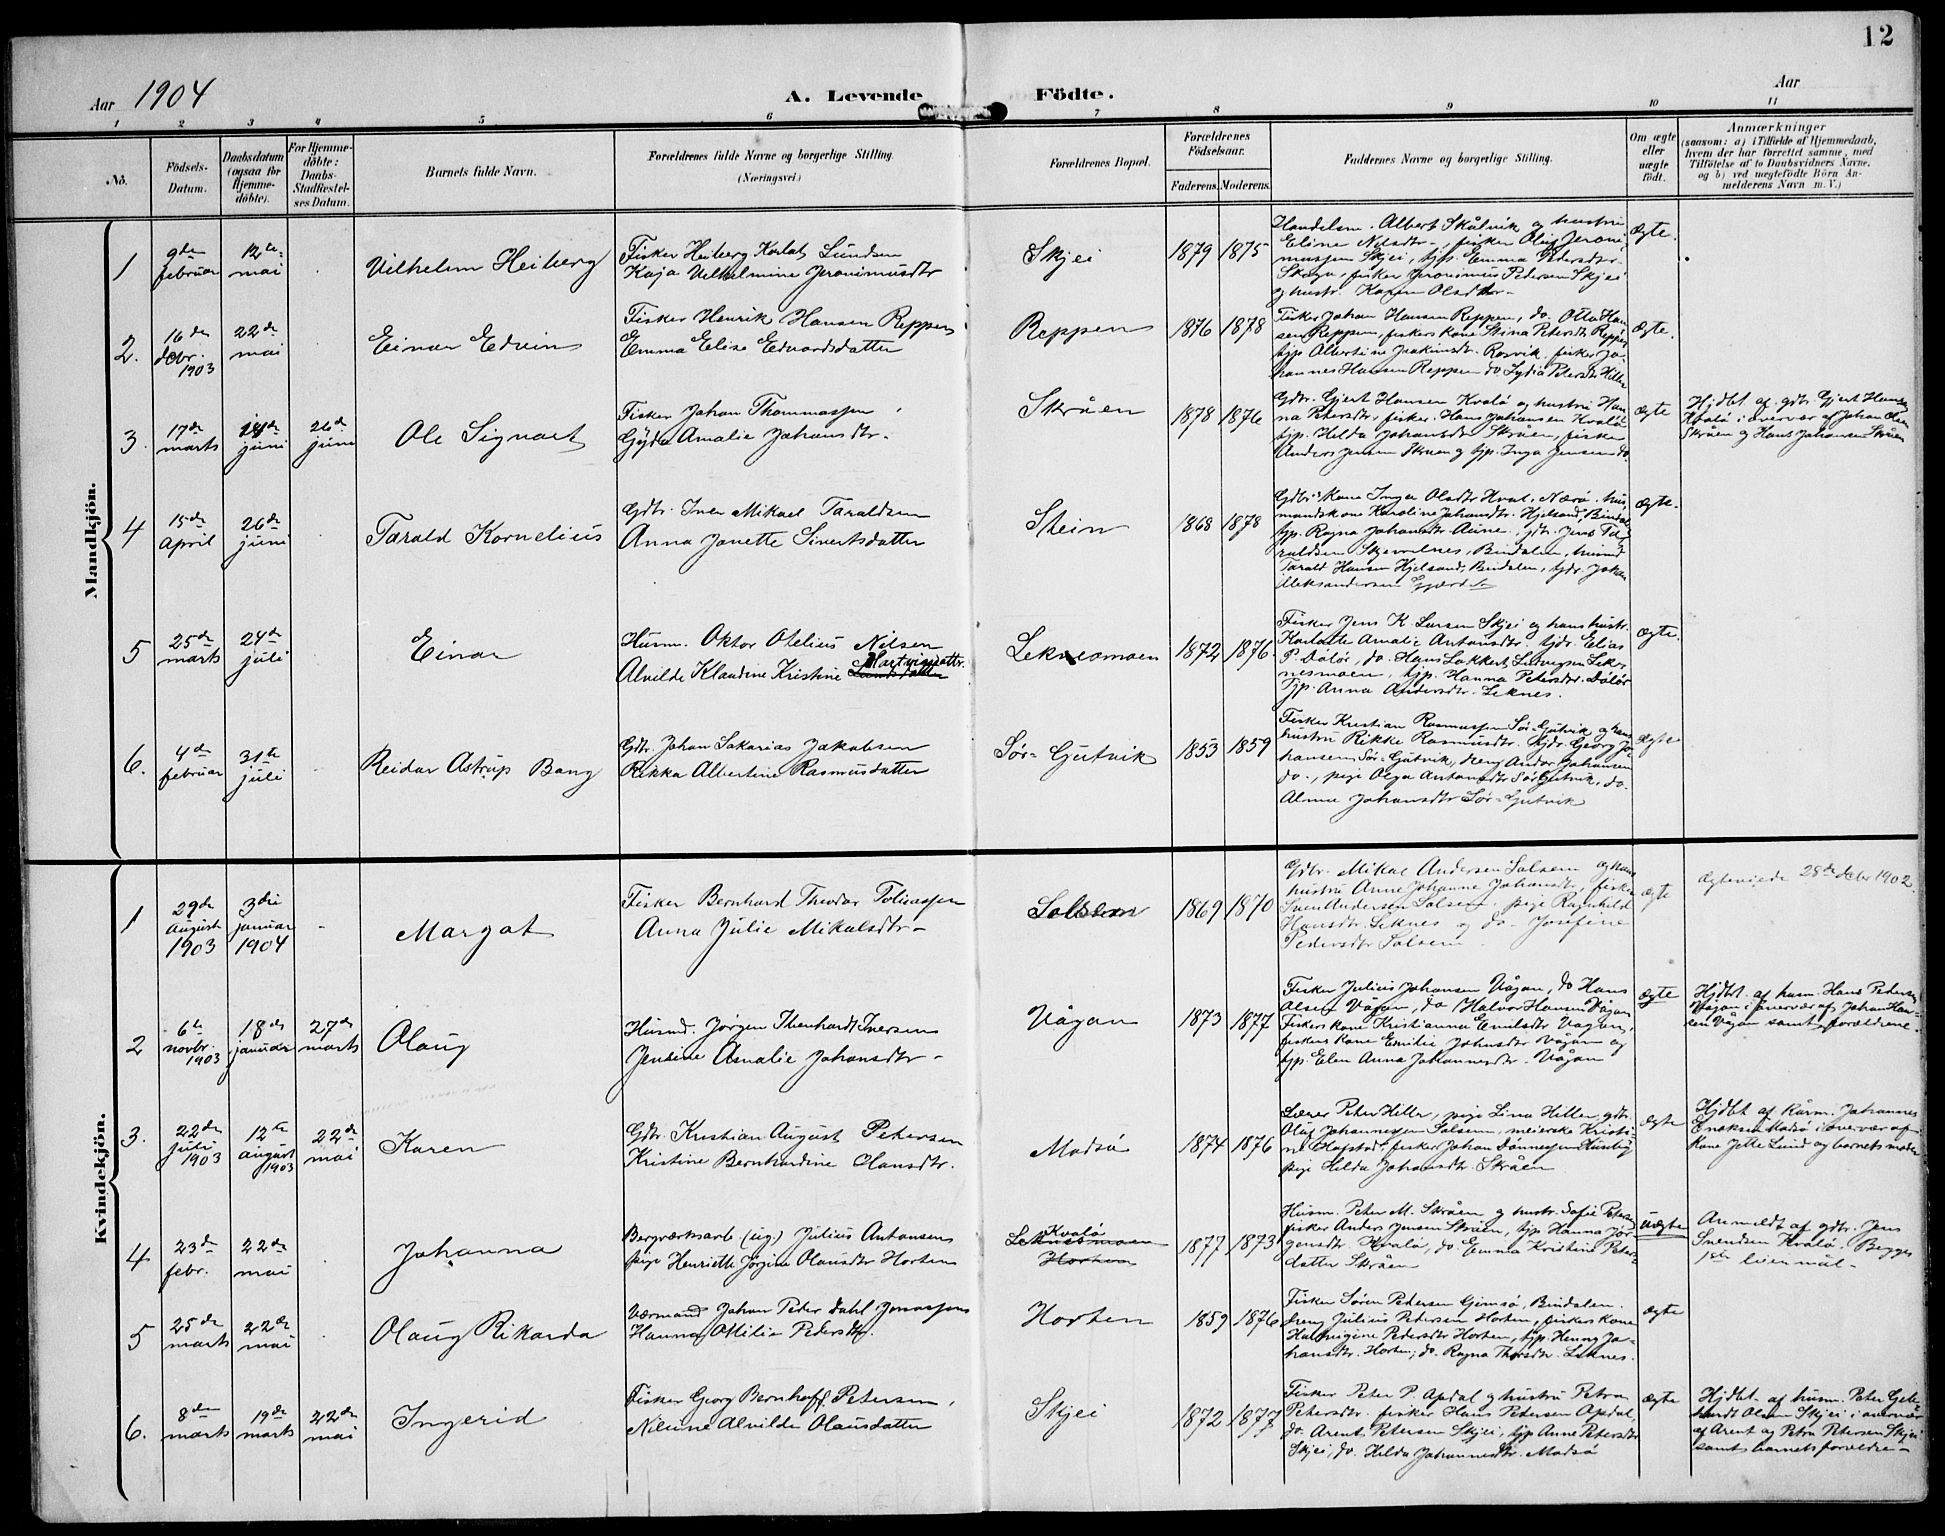 12
Aar 1904
A. Levende Födte.
Aar
1 2 3 4 5 6 7 8 9 10 11
No.
Födsels-
Datum.
Daabsdatum
(ogsaa for
Hjemme-
döbte).
For Hjemme-
döbte:
Daabs-
Stadfæstel-
ses Datum.
Barnets fulde Navn.
Forældrenes fulde Navne og borgerlige Stilling.
(Næringsvei.)
Forældrenes Bopæl.
Forældrenes
Födselsaar.
Faderens. Moderens.
Faddernes Navne og borgerlige Stilling.
Om ægte
eller
uægte
födt.
Anmærkninger
(saasom: a) i Tilfælde af Hjemmedaab,
hvem der har forrettet samme, med
Tilföielse af to Daabsvidners Navne,
og b) ved uægtefödte Börn An-
melderens Navn m. V.)
Mandkjön.
1
9de
februar
12te
mai
Vilhelm Heiberg
Fisker Heiberg Korlat Lundsen
Kaja Vilhelmine Jeronimusdtr
Skjei
1879 1875
Handelsm. Albert Skålvik og hustru
Eline Nilsdtr, fisker Oluf Jeroni-
mussen Skjei, tjp. Emma Pedersdtr
Skaga, fisker Jeronimus Pedersen Skjei
og hustr. Karen Olsdtr
Ægte.
2.
16de
debr.
1903
22de
mai
Einar Edvin
Fisker Henrik Hansen Reppen
Emma Elise Edvardsdatter
Reppen
1876 1878
Fisker Johan Hansen Reppen, do. Otto Han-
sen Reppen, fiskers kone Strina Petersdtr Reppen
tjp Albertine Joakimsdtr. Rosvik, fisker Jo-
hannes Hansen Reppen do Lydia Petersdtr Hiller
Ægte.
3.
17de
marts
24de
juni
26de
juni
Ole Signart
Fisker Johan Thommassen
Gyda Amalie Johansdtr.
Skråen
1878 1876
Gdbr. Gjert Hansen Kvalø og hustru Han-
na Petersdtr, fisker Hans Johansen Kvalø
tjp. Helda Johansdtr Skråen, fisker
Anders Jensen Skråen og tjp. Inga Jensen do.
Ægte
Hjdbt. af gdbr Gjert Hansen
Kvalø i overvær af Johan Olsen
Skråen og Hans Johansen Skråen
4
15de
April
26de
juni
Tarald Kornelius
Gdbr. Iver Mikael Taraldsen
Anna Janette Sivertsdatter
Stein
1868 1878
Gdbr. Kone Inga Olsdtr Hval, Nærø, hus-
mandskone Karoline Johansdtr. Hjelsand, Bindal
tjp. Ragna Johansdtr Aune, gdr. Jens Ta-
raldsen Skjevelnes, Bindalen, husmd
Tarald Hansen Hjelsand, Bindalen, tjdr. Johan
Aleksandersen
Ægte.
5
25de
marts
24de
juli
Einar
Husm. Oktor Otelius Nilsen
Alvilde Klaudine Kristine Hartvigsdattr.
Leknesmoen
1872 1876.
Fisker Jens K. Larsen Skjei og hans hustr.
Karlotte Amalie Antonsdtr. tjdr. Elias
P. Dølør, do. Hans Lokkert Ludvigsen Lek-
nesmoen, tjp. Hanna Petersdtr. Dølør
Tjp. Anna Andersdtr. Leknes.
Ægte.
6.
4de
februar
31te
juli
Reidar Astrup Bang
Gdbr. Johan Sakarias Jakobsen
Rikka Albertine Rasmusdatter
Sør-Gutvik
1853 1859
Fisker Kristian Rasmussen Sør-Gutvik og hans
hustru Rikke Rasmusdtr. tjdr. Georg Jo-
hansen Sør-Gutvik, dreng Andor Johansen
do., pige Olga Antonsdtr Sør Gutvik, do.
Alma Johansdtr Sør-Gutvik
Ægte
Kvindekjön.
1
29de
August
1903
3die
januar
1904
Margot
Fisker Bernhard Theodor Toliassen
Anna Julie Mikalsdtr
Solsem
1869 1870
Gdbr. Mikal Andersen Solsem og hans
hustru Anne Johanne Johansdtr, fisker
Sven Andersen Solsem, pige Ragnhild
Hansdtr Leknes og do Josefine
Pedersdtr Solsem
ægte
Ægteviede 28de debr 1902.
2
6te
novbr.
1903
18de
januar
27de
marts
Olaug
Husmd. Jørgen Ibenhardt Iversen
Jensine Amalie Johansdtr
Vågan
1873 1877
Fisker Julius Johansen Vågan, do Hans
Olsen Vågan, do Halvor Hansen Vågan
Fiskers kone Kristianna Emilsdtr Vågan,
fiskers kone Emilie Johnsdtr Vågan og
tjp. Elen Anna Johannesdtr. Vågan
ægte
Hjdbt. af husm. Hans Pedersen
Vågan i overvær af Johan Han-
sen Vågan samt forældrene.
3.
22de
juli
1903
12te
August
1903
22de
mai
Karen
Gdbr. Kristian August Petersen
Kristine Bernhardine Olausdtr.
Madsø
1874 1876
Lærer Peter Hiller, pige Lina Hiller, gdbr.
Oluf Johannessen Solsem, meierske Kristi-
ne Hofstad, fisker Johan Dønnessen Husby
pige Hilda Johansdtr. Skråen
ægte
Hjdbt af Kårm. Johannes
Eneksen Madsø i overvær af
Kone Jette Lund og barnets moder
4
23de
febr.
22de
mai
Johanna
Bergværksarb. (ug.) Julius Antonsen
pige Henriette Jørgine Olausdtr Horten
Kvalø
Leknesmoen
Horten
1877 1873
Husm. Peter M. Skråen og hustr. Sofie Petersen
fisker Anders Jensen Skråen, tjp Hanna Jør-
gensdtr. Kvalø, do. Emma Kristine Peter-
datter Skråen
uægte
Anmeldt af gdbr. Jens
Svendsen Kvalø. Begges
1ste leiermål
5
25de
marts
22de
mai
Olaug Rikarda
Værmand Johan Peder Dahl Jonassen
Hanna Otilie Pedersdtr.
Horten
1859 1876
Fisker Søren Pedersen Gimsø, Bindalen.
dreng Julius Pedersen Horten, fiskers kone
Halvigine Pedersdtr Horten, tjp Henny Jo-
hansdtr. Horten, do. Ragna Thorsdtr. Leknes.
ægte
6.
8de
marts
19de
marts
22de
mai
Ingerid
Fisker Georg Bernhoff Petersen,
Nilsine Alvilde Olausdatter
Skjei
1872 1877
Fisker Peter P. Apdal og hustru Petra
Petersdtr. fisker Hans Petersen Apdal,
do. Arent Petersen Skjei, tjp Anne Petersdtr
Skjei, do. Hilda Johannesdtr. Madsø
ægte
Hjdbt. af husm. Peter Gele-
hardt Olsen Skjei i overvær
af Arent og Petra Petersen Skjei
samt barnets forældre